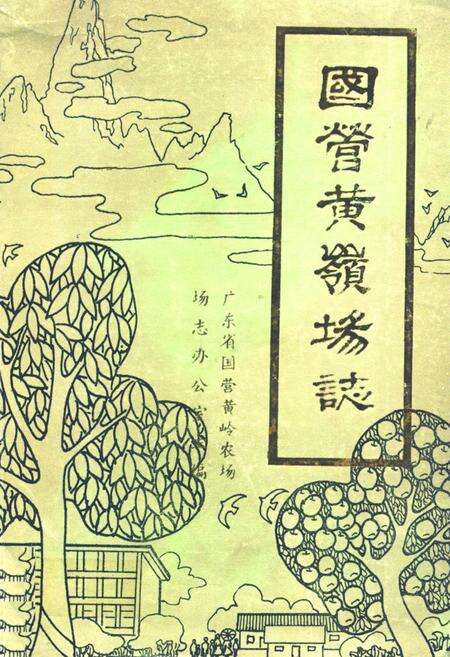 國營黃嶺場誌
广东省国营黄岭农场
场志办公室编